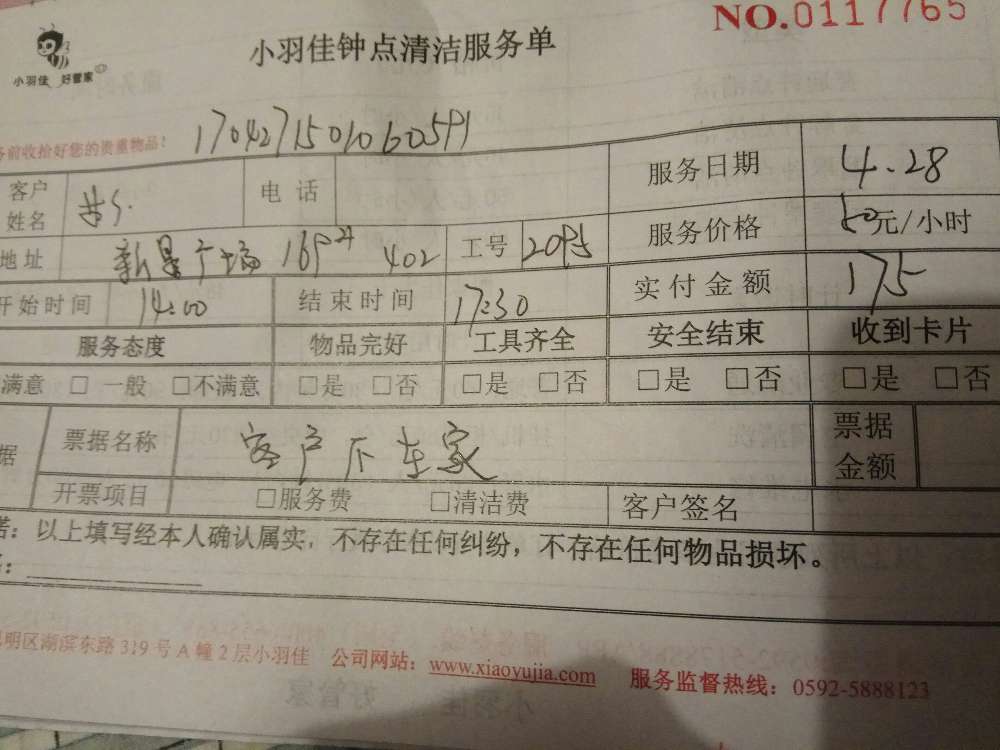 NO.0117765
小羽佳钟点清洁服务单
小羽佳 好管家
务前收拾好您的贵重物品！ 1704271501060591
客户姓名 电话 服务日期 4.28
地址 新景广场 402 工号 2095 服务价格 50元/小时
开始时间 14:00 结束时间 17:30 实付金额 175
服务态度 物品完好 工具齐全 安全结束 收到卡片
满意 □ 一般 □不满意 □是 □否 □是 □否 □是 □否 □是 □否
据 票据名称 客户不在家 票据金额
开票项目 □服务费 □清洁费 客户签名
诺：以上填写经本人确认属实，不存在任何纠纷，不存在任何物品损坏。
明区湖滨东路319号A幢2层小羽佳 公司网站：www.xiaoyujia.com 服务监督热线：0592-5888123